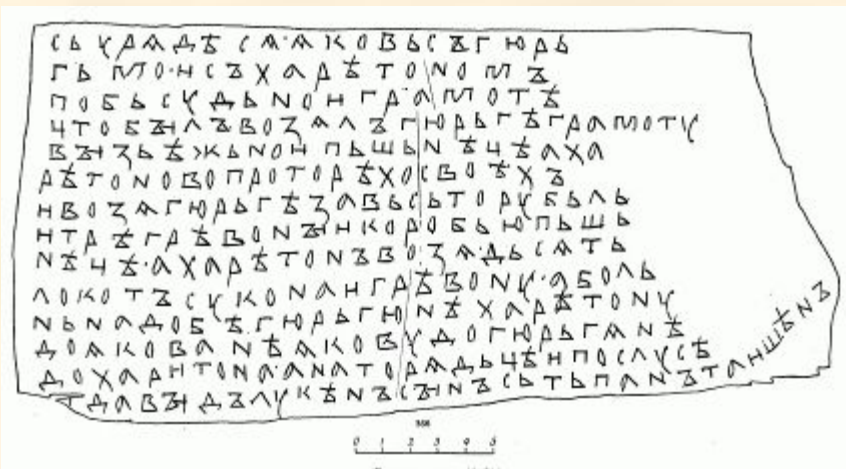 СЬ УРѦДѢ СѦ·ѦКОВЬСЪГЮРЬ
ГЬ МО·И СЪ ХАРѢТОНОМЪ
ПОБЬСУДЬНОИГРАМОТѢ
ЧТОБЪІЛЪВОЗѦЛЪГЮРЬГѢГРАМОТУ
ВЪІЗЬѢЖЬНОИПЬШЬНѢЧѢАХА
РѢТОНОВОПРОТОРѢХОСВОѢХЪ
ИВОЗѦГЮРЬГѢЗАВЬСЬТОРУБЬЛЬ
ИТРѢГРѢВОНЪІИКОРОБЬЮПЬШЬ
НѢЧѢ·АХАРѢТОНЪВОЗѦ·ДЬСѦТЬ
ЛОКОТЪСУКОНАИГРѢВОНУ·АБОЛЬ
НЬНАДОБѢ·ГЮРЬГЮНѢХАРѢТОНУ
ДОѦКОВАНѢѦКОВУДОГЮРЬГАНѢ
ДОХАРИТОНА·АНАТОРѦДЬЧѢИПОСЛУСѢ
ТДАВЪІДЪЛУКѢНЪСЪІНЪСЬТЬПАНЪТАИШѢНЪ
366
0 1 2 3 4 5